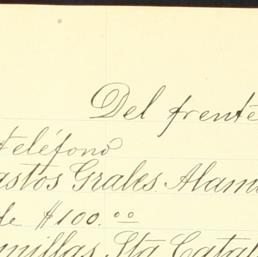 Del frente
teléfono
astos Grales. Alam
de $100.00
millas, Sta Catal